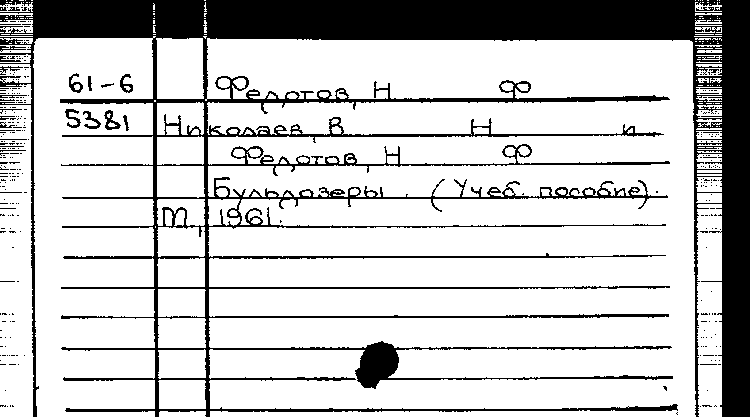 61-6 Федотов, Н Ф
5381 Николаев, В Н и
Федотов, Н Ф
Бульдозеры. (Учеб. пособие).
М, 1961.